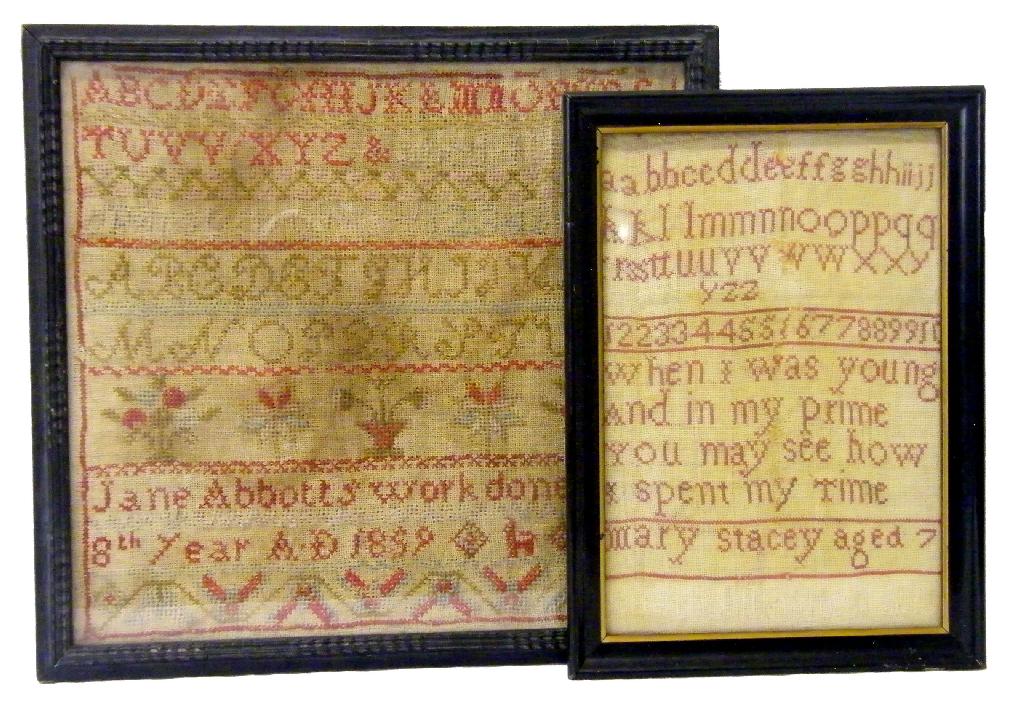 ABCDEFGHIJKLMNOP
TUVVXYZ&
ABCDEFGHIJK
MNOPQRST
Jane Abbotts work done
8th Year A·D 1859
aabbccddeeffgghhiijj
kkllmmnnooppqq
rrssttuuvvwwxxy
yzz
12233445566778899 10
when I was young
And in my prime
you may see how
I spent my Time
mary stacey aged 7